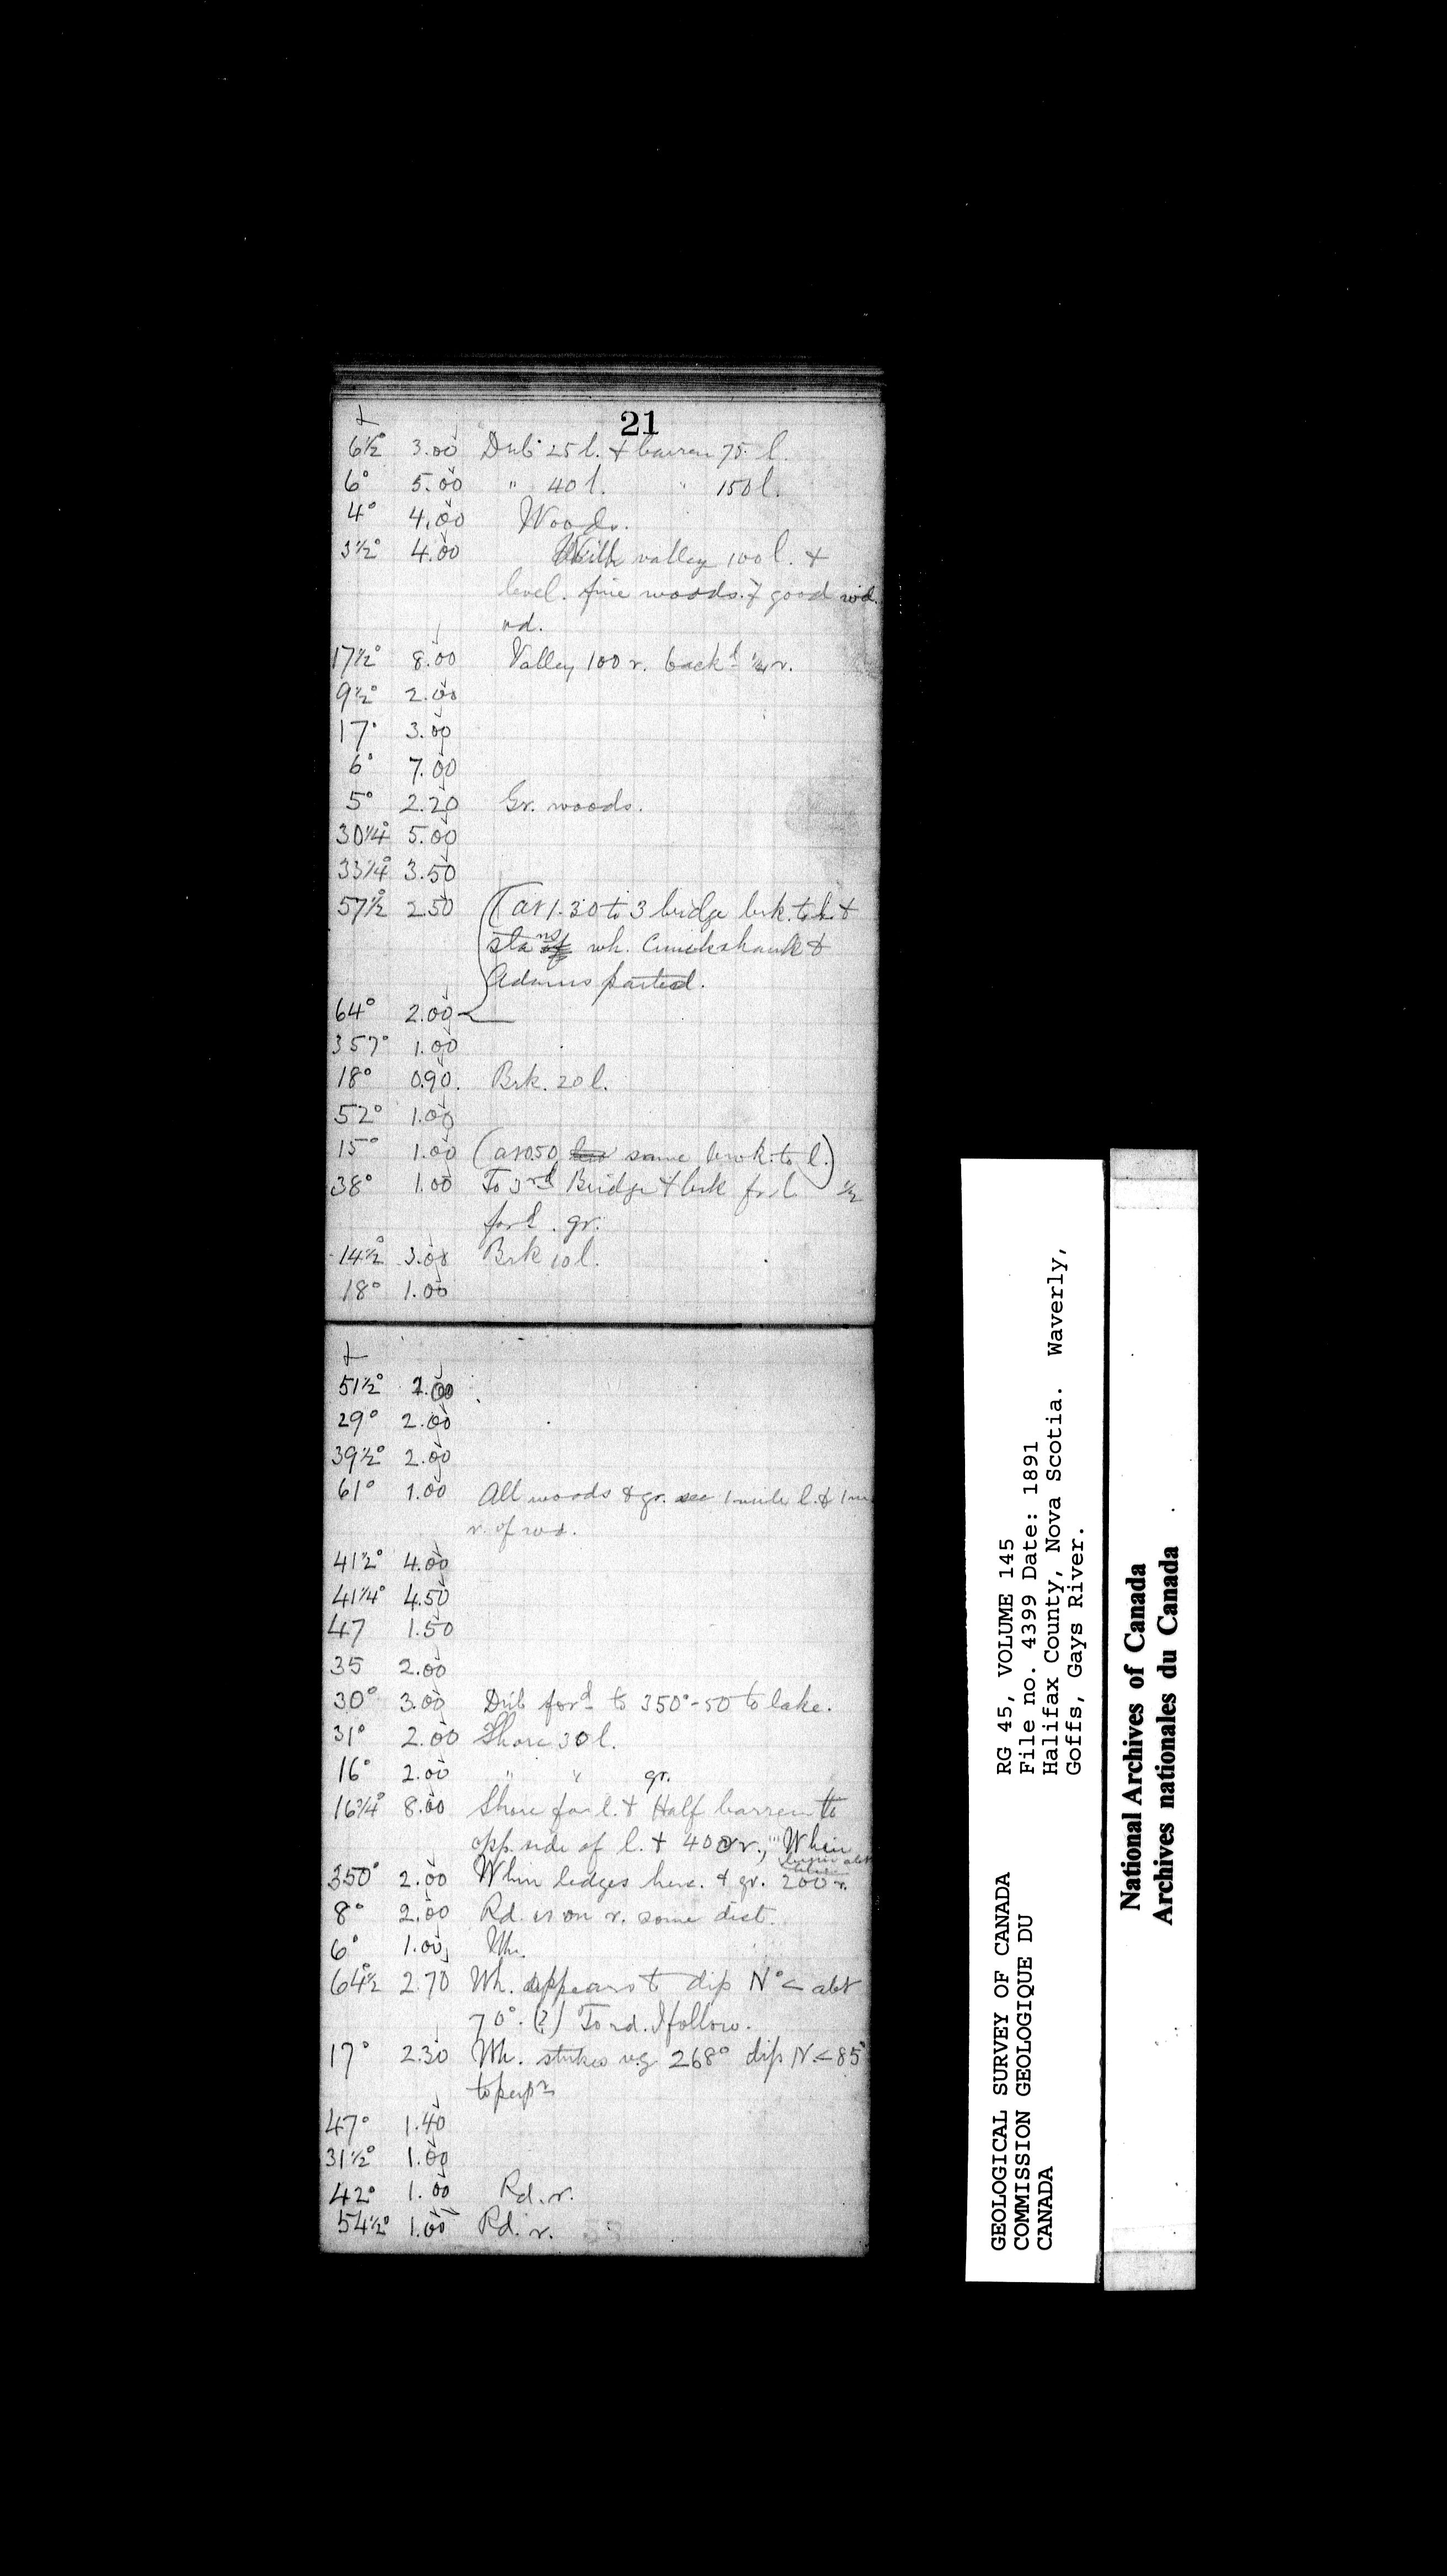 21
6½° 3.00 Drib 25 l. & barren 75 l.
6° 5.00 " 40 l. " 150 l.
4° 4.00 Woods.
3½° 4.00 valley 100 l. &
level. fine woods. & good
rd.
17½° 8.00 Valley 100 r. backd ¼ r.
9½° 2.00
17° 3.00
6° 7.00
5° 2.20 Gr. woods.
30¼° 5.00
33¼° 3.50
57½° 2.50 (at 1.30 to 3 bridge brk. to l. &
sta ns wh. Cruickshank &
Adams parted.
64° 2.00
357° 1.00
18° 0.90. Brk. 20 l.
52° 1.00
15° 1.00 (at 0.50 same brok. to l.)
38° 1.00 To 3rd Bridge & brk for l ½
ford. gr.
14½° 3.00 Brk 10 l.
18° 1.00
51½° 2.00
29° 2.00
39½° 2.00
61° 1.00 All woods & gr. see 1 mile l. & 1 m
r. of rd.
41½° 4.00
41¼° 4.50
47 1.50
35 2.00
30° 3.00 Drib ford to 350°-50 to lake.
31° 2.00 Shore 30 l.
16° 2.00 " " gr.
16¾° 8.00 Shore for l. & Half barren to
opp. side of l. & 400 r., Whin
350° 2.00 Whin ledges here. & gr. 200 r.
8° 2.00 Rd. is on r. some dist.
6° 1.00 Wh.
64½° 2.70 Wh. appears to dip N° < abt
70°. (?) To rd. I follow.
17° 2.30 Wh. strikes v.g. 268° dip N. < 85°
to perpr
47° 1.40
31½° 1.00
42° 1.00 Rd. r.
54½° 1.00 Rd. r.
GEOLOGICAL SURVEY OF CANADA
COMMISSION GEOLOGIQUE DU
CANADA
RG 45, VOLUME 145
File no. 4399 Date: 1891
Halifax County, Nova Scotia. Waverly,
Goffs, Gays River.
National Archives of Canada
Archives nationales du Canada